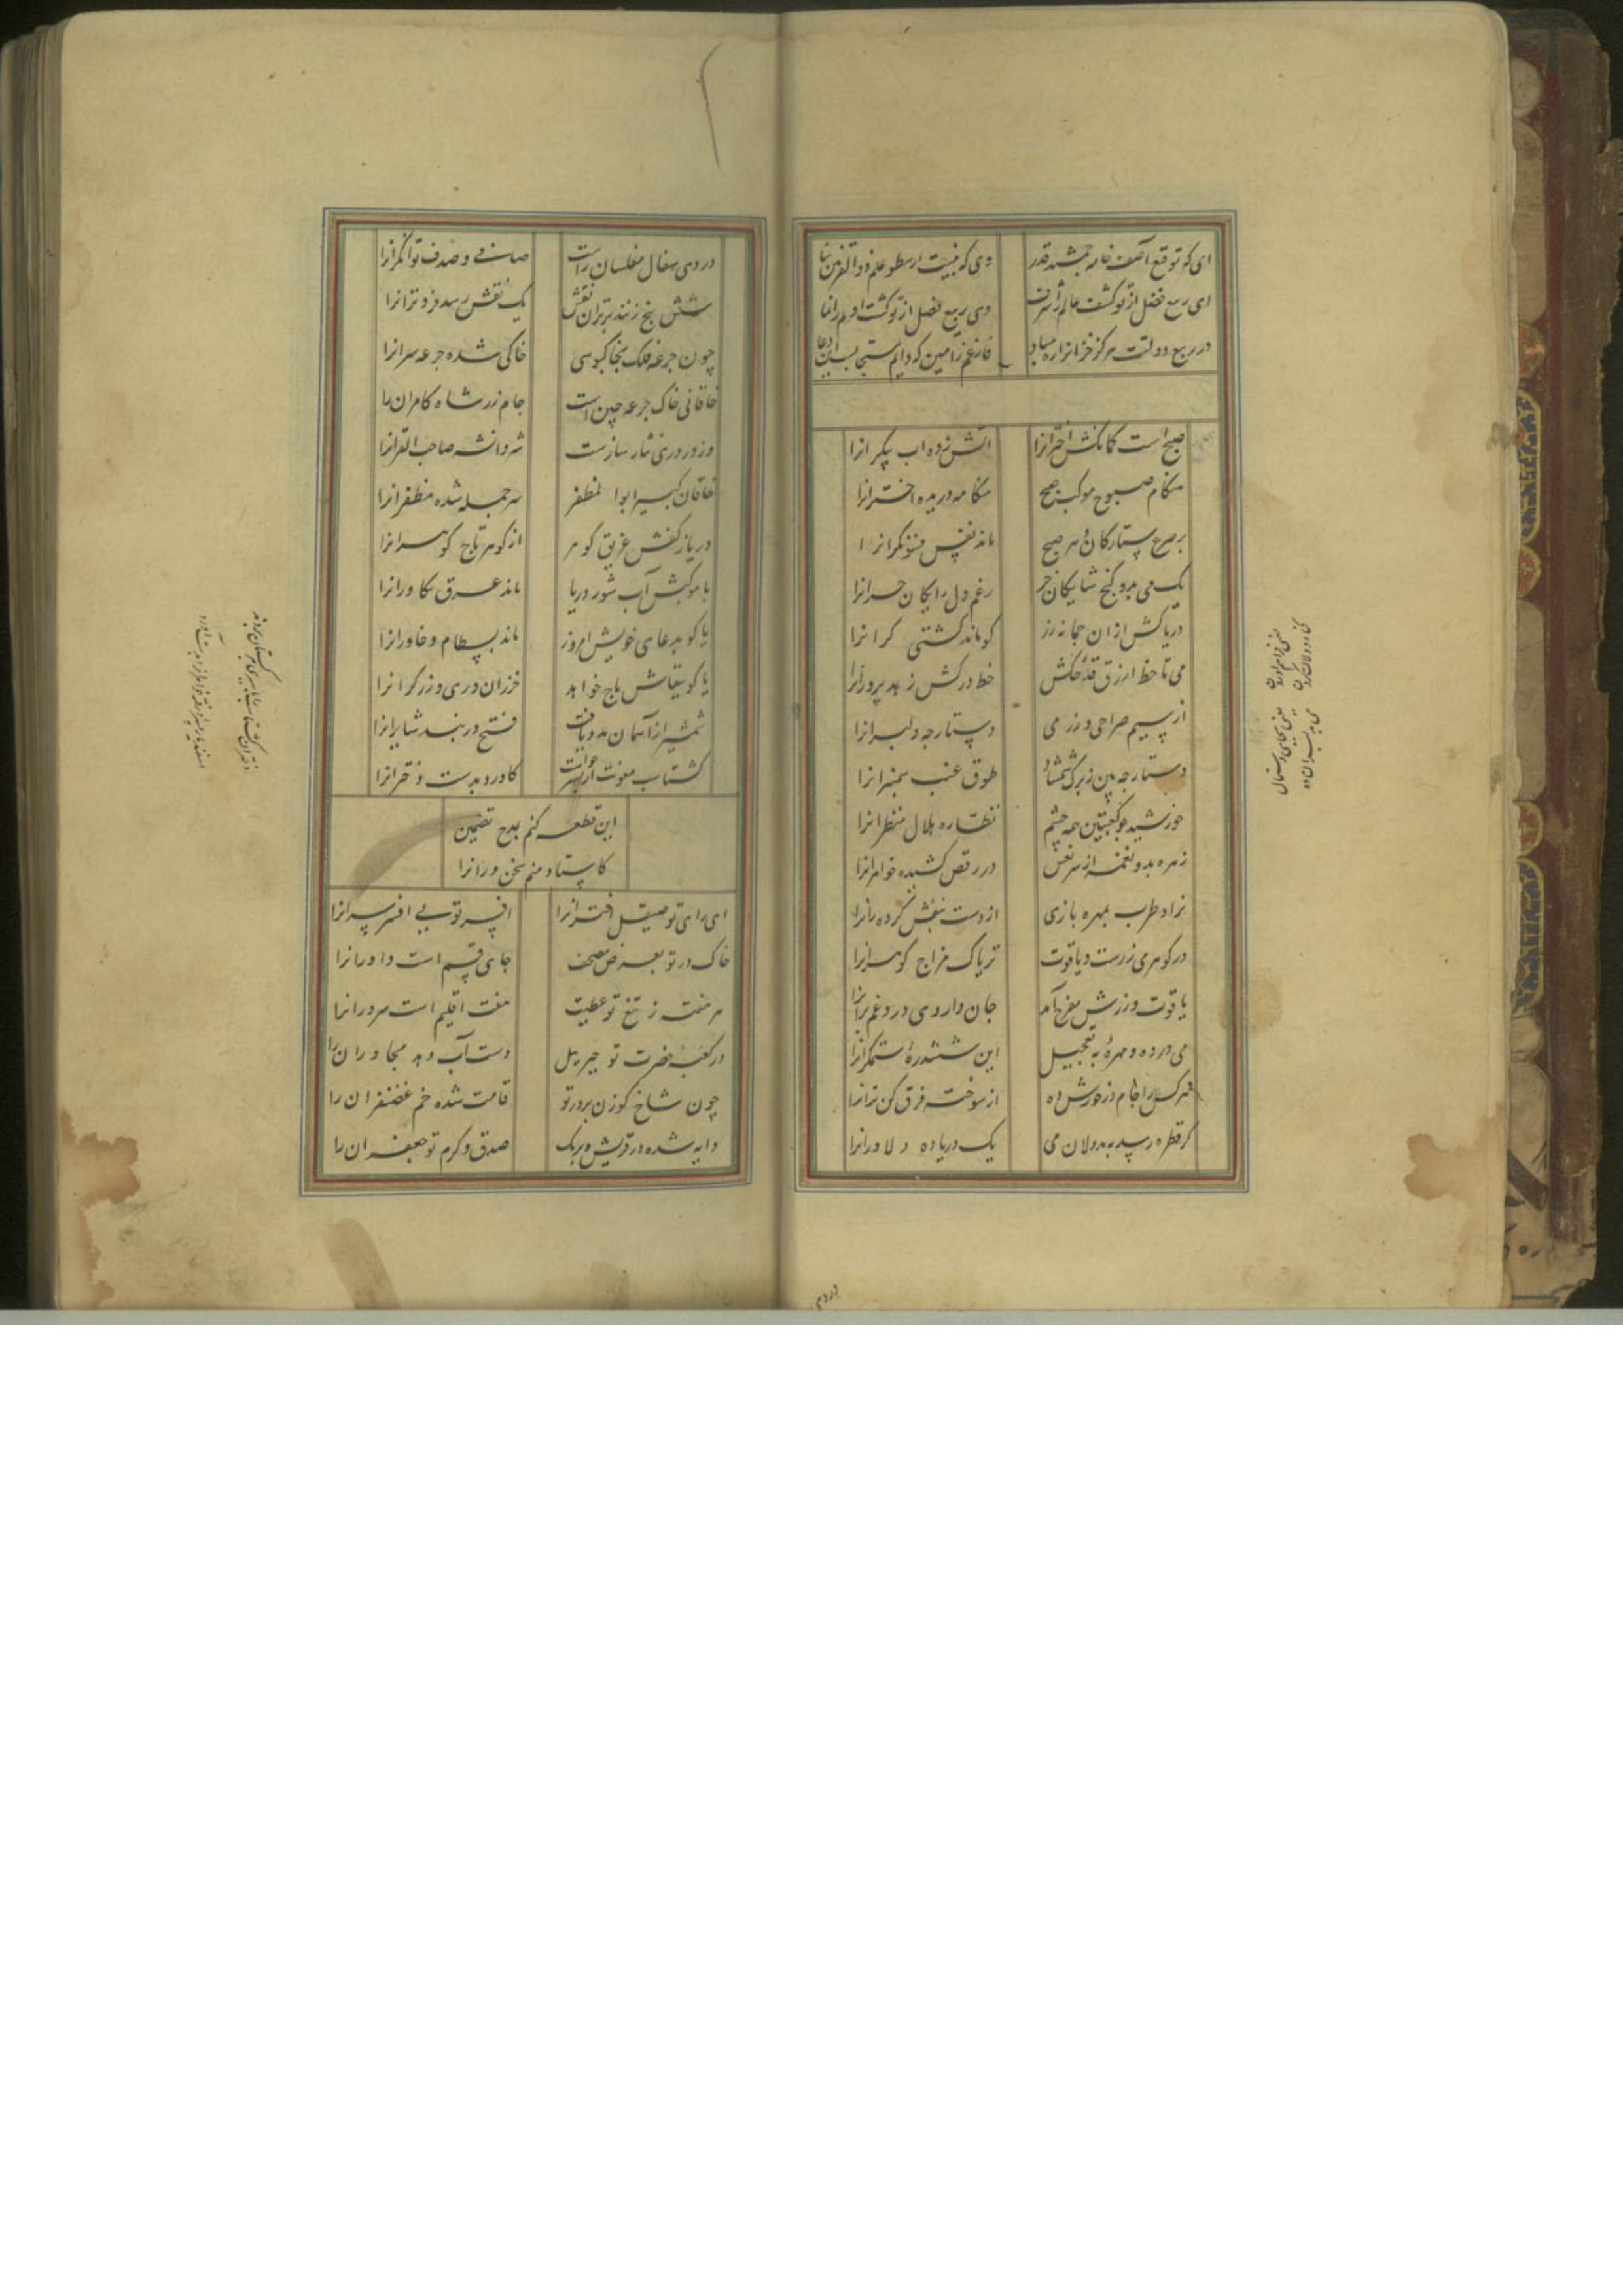 ای که توقع آصف خامه جمشید قدر
وی که هیبت ارسطو علم ذوالقرنین
ای ربع فضل از تو کشت عالم را شرف
وی ربیع فضل از تو کشت آدم را نما
در ربع دولتت هرگز خزانرا ره مباد
فارغم ز آمین که دایم مستجابست این دعا
صبح است کمانکش اخترانرا
آتش زده آب پیکرانرا
هنگام صبوح موکب صبح
هنگامه دریده اخترانرا
بر صرع ستارگان دم صبح
ماند نفس فسونگرانرا
یک می بدو گنج شایگان خر
رغم دل رایگان خرانرا
دریا کش ازان چمانه زر
کو ماند کشتی گرانرا
می تا خط ازرق قدح کش
خط در کش زهد پرورانرا
از سیم صراحی و زر می
دستارچه دلبرانرا
دستارچه بین ز برگ شمشاد
طوق غبب سمنبرانرا
خورشید چو کعبتین همه چشم
نظاره هلال منظرانرا
زهره بدو نغمه از سر نعش
در رقص کشیده خواهرانرا
نراد طرب بمهره بازی
از دست بنفش کرده رانرا
در گوهر می زرست و یاقوت
تریاک مزاج گوهرانرا
یاقوت و زرش مفرح آمد
جان داروی درد غم برانرا
می درده و مهره به تعجیل
این ششدره ستمگرانرا
هرکس را جام در خورش ده
از سوخته فرق کن ترانرا
گر قطره رسد به بددلان می
یک دریا ده دلاورانرا
دردی و سفال مفلسان راست
صافی و صدف توانگرانرا
شش پنج زنند برتران نقش
یک نقش رسد فروترانرا
چون جرعه فلک بخاکبوسی
خاکی شده جرعه سرانرا
خاقانی خاک جرعه چین است
جام زر شاه کامران را
وز در دری نثار سازست
شروانشه صاحب القرانرا
خاقان کبیر ابوالمظفر
سر جمله شده مظفرانرا
دریا ز کفش غریق گوهر
از گوهر تاج گوهرانرا
با موکبش آب شور دریا
ماند عرق تکاورانرا
یا کوبدعای خویش امروز
ماند بسطام و خاورانرا
یا کوبتقاش باج خواهد
خزران و ری و زره گرانرا
شمشیر از آسمان مدد یافت
فتح دربند شابرانرا
گشتاسب معونت از پسر خواست
کاورد بدست دخترانرا
این قطعه کنم بمدح تضمین
کاستاد منم سخن ورانرا
ای رای تو صیقل اخترانرا
افسر توئی افسر سرانرا
خاک در تو بعرض مصحف
جای قسم است داورانرا
هر هفته ز تیغ تو عطیت
هفت اقلیم است سرورانرا
در کعبه حضرت تو جبریل
دست آب دهد مجاوران را
چون شاخ گوزن بر در تو
قامت شده خم غضنفران را
دایه شده در قریش و برمک
صدق و کرم تو جعفران را